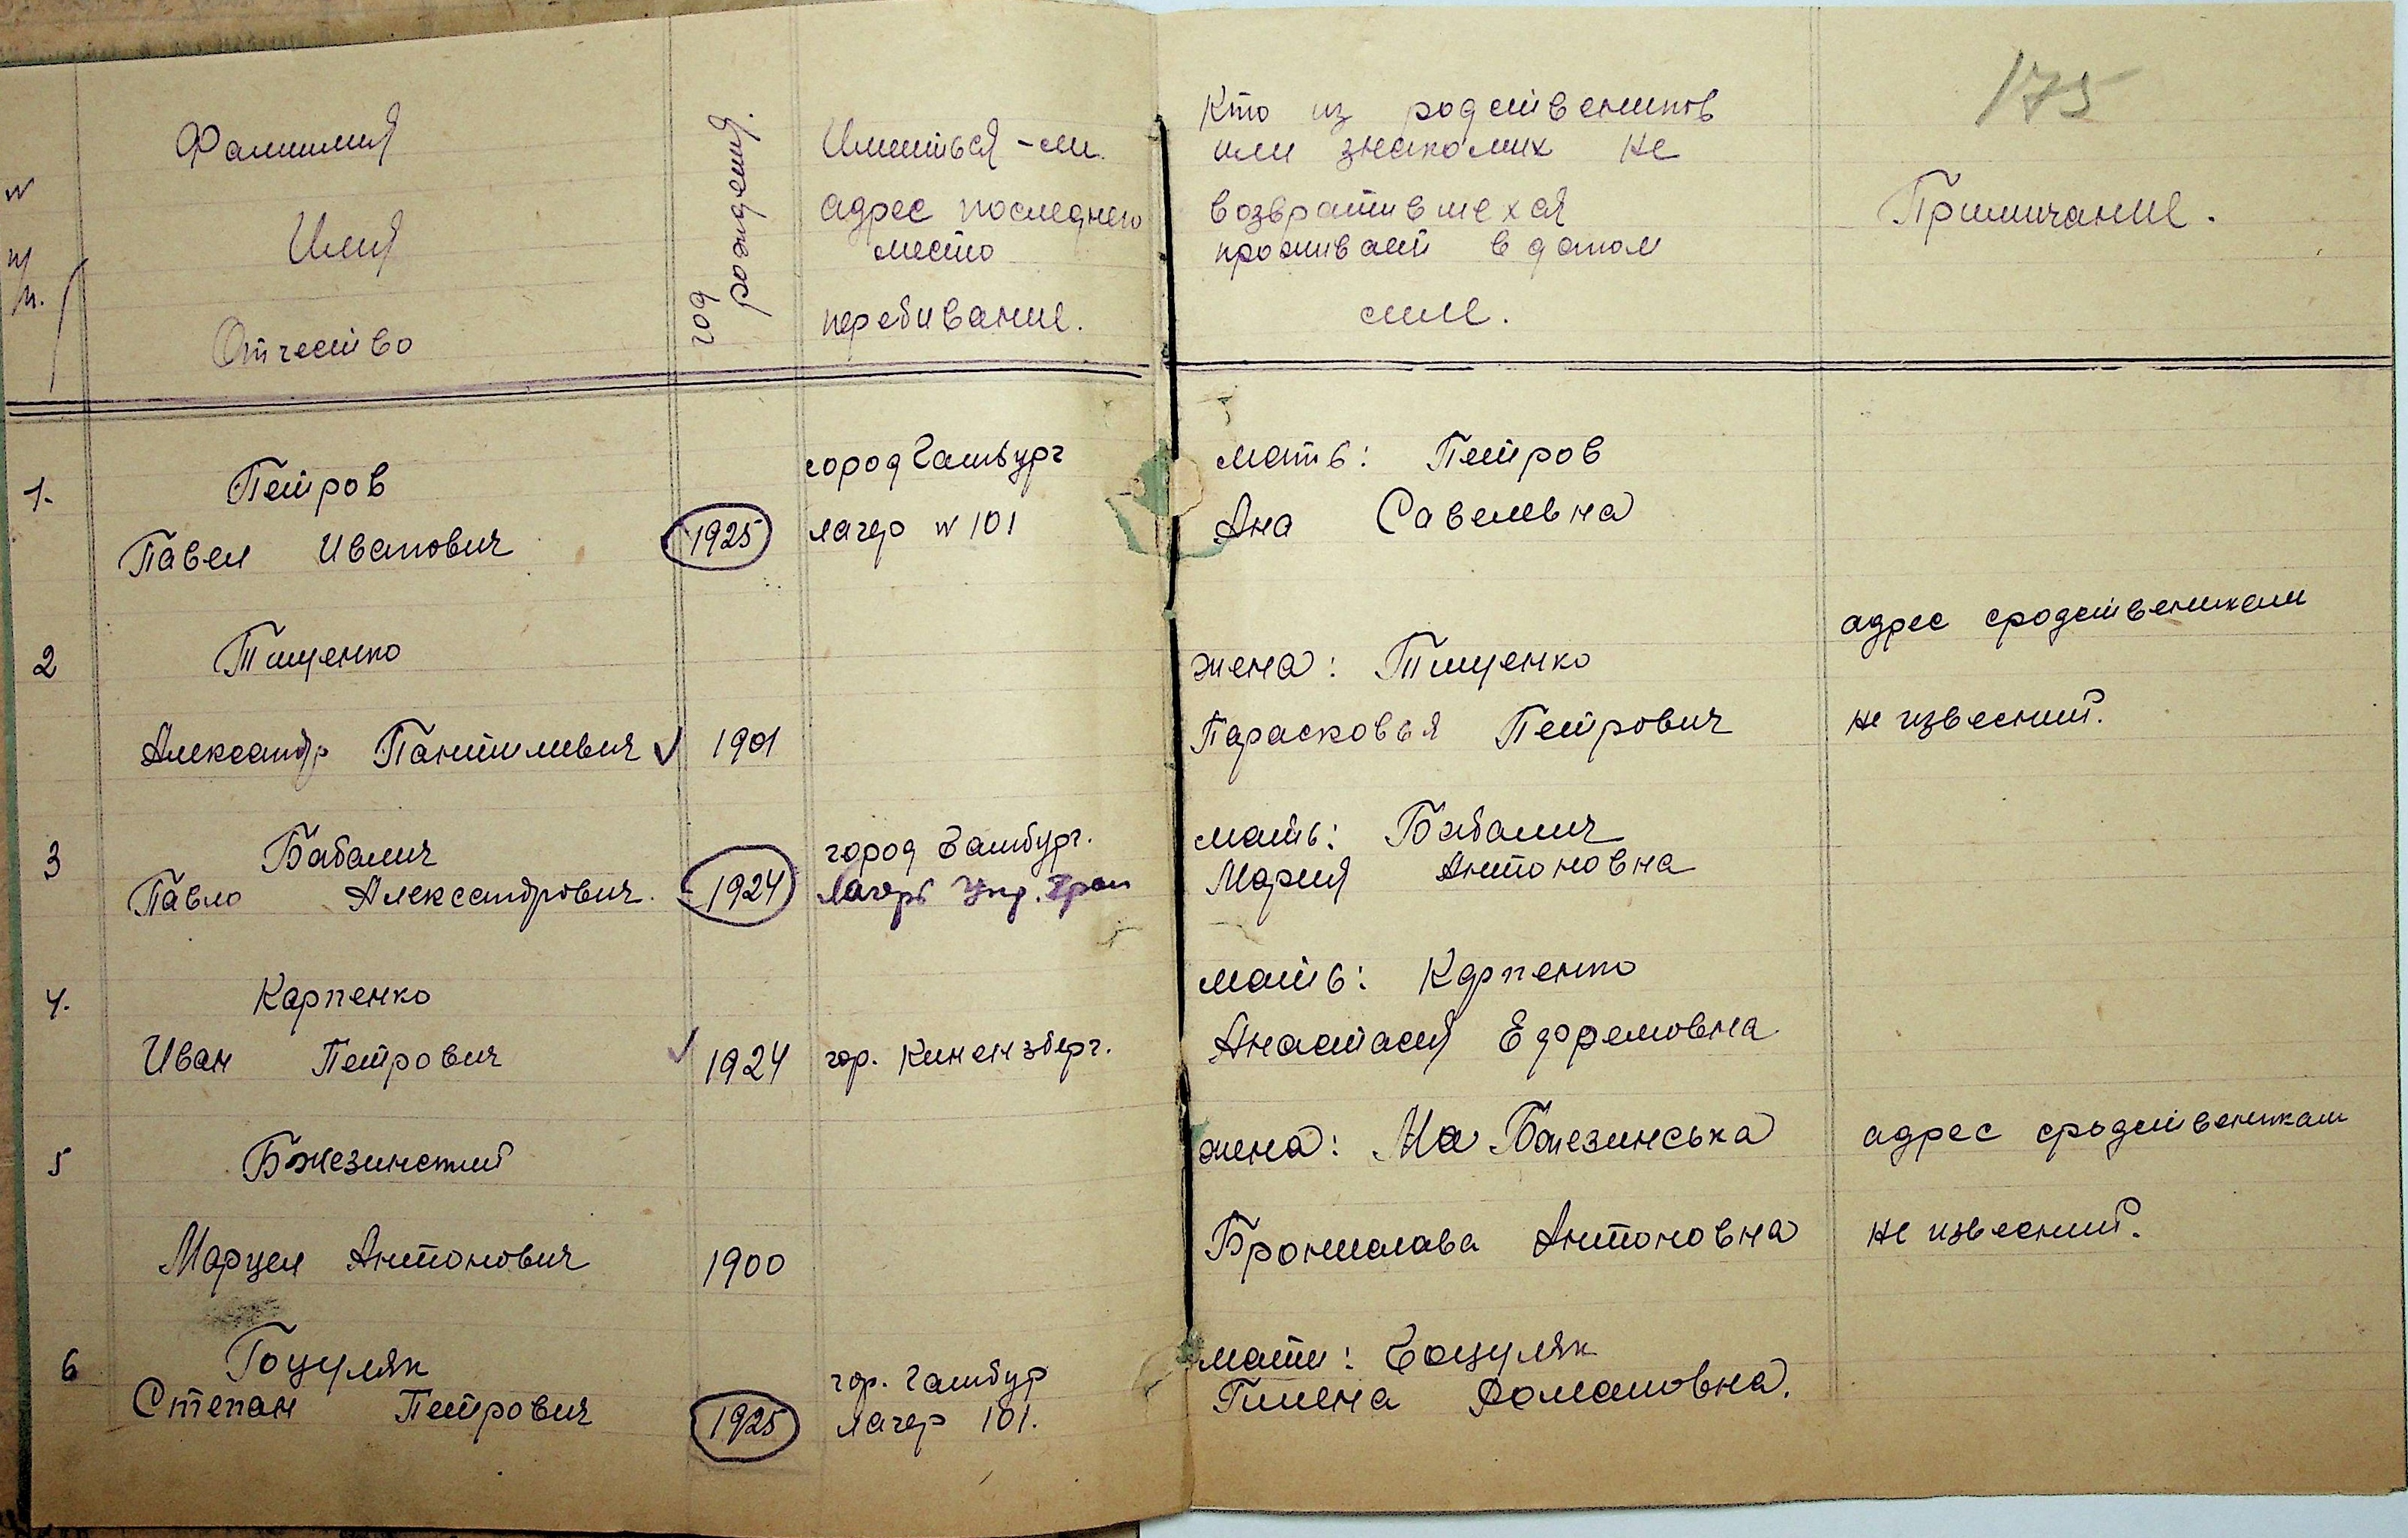 175
N
п/
п.
Фамилия
Имя
Отчество
год
рождения.
Имееться-ли
адрес последнего
место
перебивание.
Кто из родствеников
или знакомих не
возвратившехся
проживает в даном
селе.
Примичание.
1.
Петров
Павел Иванович
1925
город Гамбург
лагер N 101
мать: Петров
Ана Савельвна
2
Тищенко
Александр Пантилевич
1901
жена: Тищенко
Парасковья Петрович
адрес сродствениками
не известний.
3
Бабалич
Павло Александрович.
1924
город Гамбург.
Лагерь
мать: Бабалич
Мария Антоновна
4.
Карпенко
Иван Петрович
1924
гор. Кинензберг.
мать: Карпенко
Анастасия Ефремовна
5
Бжезинский
Марцел Антонович
1900
жена: Ма Бжезинська
Бронислава Антоновна
адрес сродствениками
не известний.
6
Гоцуляк
Степан Петрович
1925
гор. Гамбур
лагер 101.
мати: Гоцуляк
Романовна.